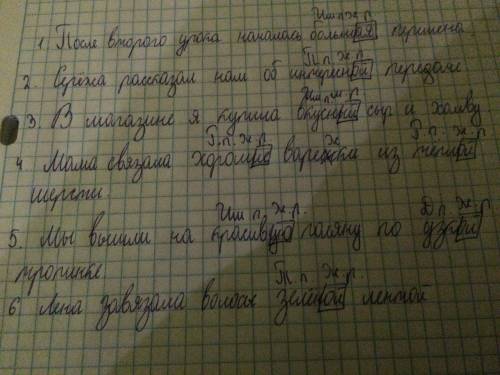 Им.п.ж.р.
1. После второго урока началась большая перемена
П.п. Ж.р.
2. Серёжа рассказал нам об интересной передаче
Им.п.м.р.
3. В магазине я купила вкусный сыр и халву
Р.п. ж.р.
4 Мама связала хорошие варежки из тёплой
шерсти
Им п. ж.р. Д.п. ж.р.
5. Мы вышли на красивую поляну по узкой
тропинке
Т.п. ж.р.
6 Лена завязала волосы зелёной лентой